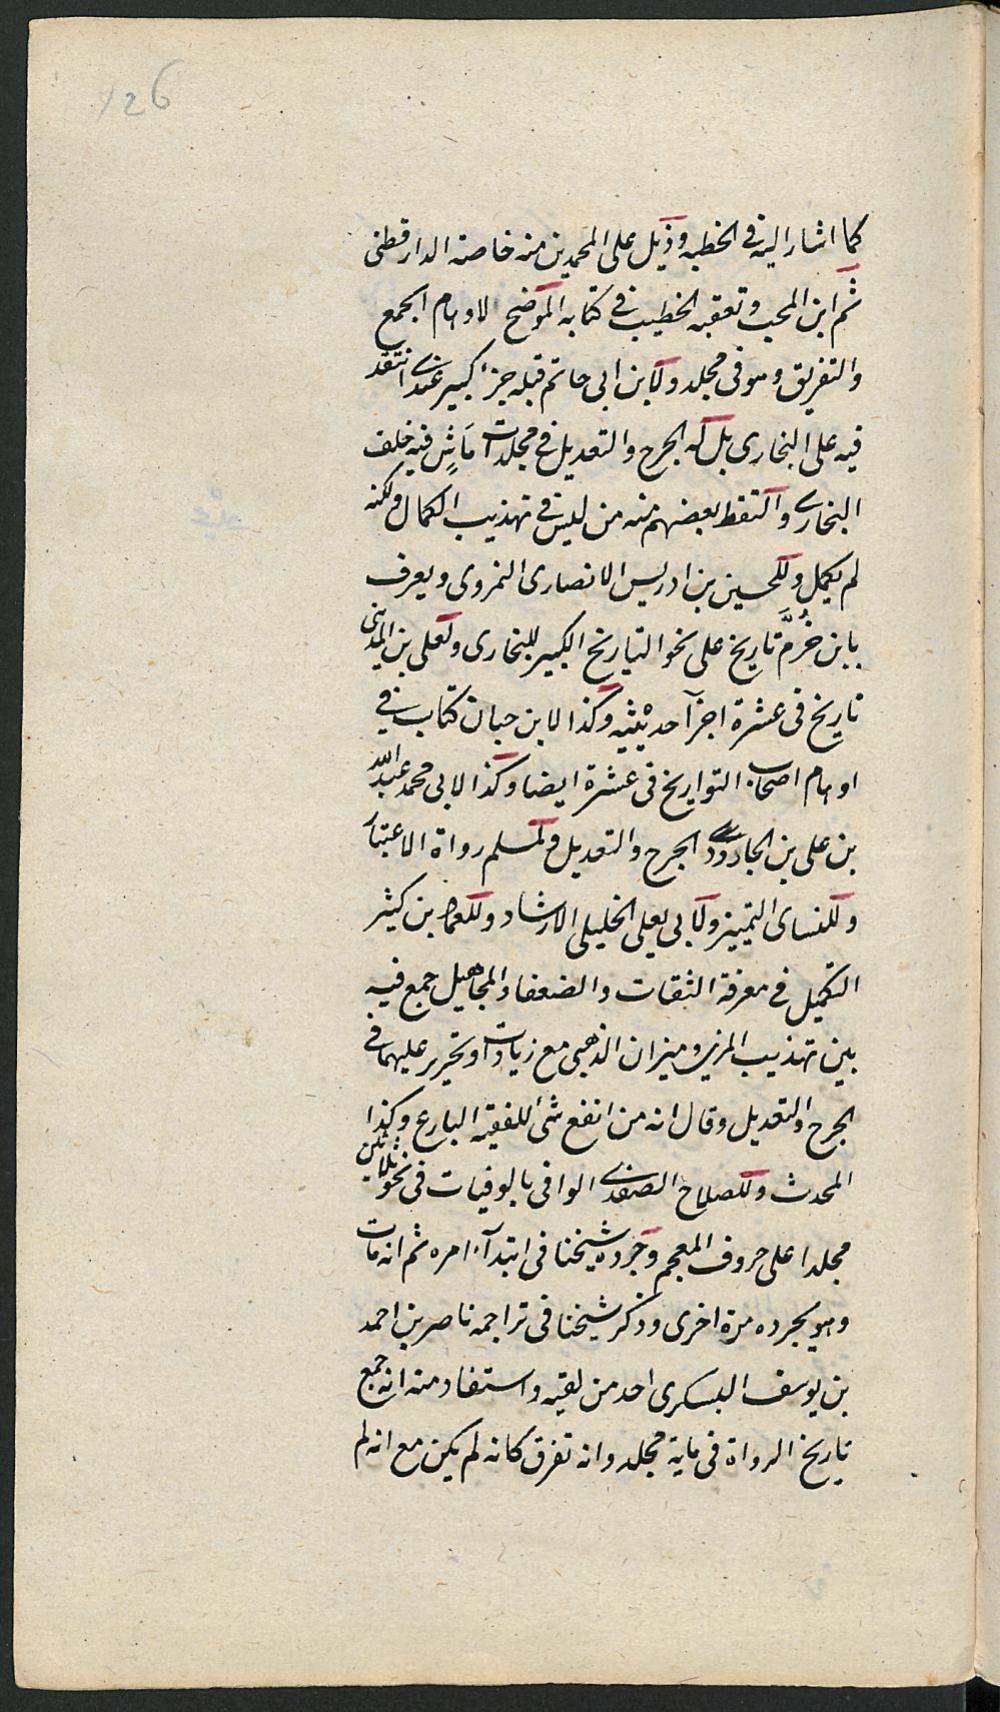 126
كما اشار اليه فى الخطبه وذيل على المحمدين منه خاصة الدارقطنى
ثم ابن المحب وتعقبه الخطيب فى كتابه الموضح لاوهام الجمع
والتفريق وهو فى مجلد ولابن ابى حاتم قبله جزء كبير عندى انتقد
فيه على البخارى بل له الجرح والتعديل فى مجلدات ماش فيه خلف
البخارى والتقط بعضهم منه من ليس فى تهذيب الكمال ولكنه
لم يكمل وللحسين بن ادريس الانصارى الهروى ويعرف
بابن خُرَّم تاريخ على نحو التاريخ الكبير للبخارى ولعلى بن المدينى
تاريخ فى عشرة اجزآ حديثيه وكذا لابن حبان كتاب فى
اوهام اصحاب التواريخ فى عشرة ايضا وكذا لابى محمد عبد الله
بن على بن الجارود الجرح والتعديل ولمسلم رواة الاعتبار
وللنساى التمييز ولابى يعلى الخليلى الارشاد وللعماد بن كثير
التكميل فى معرفة الثقات والضعفا والمجاهيل جمع فيه
بين تهذيب المزى وميزان الذهبى مع زيادات وتحرير عليهما فى
الجرح والتعديل وقال انه من انفع شى للفقيه البارع وكذا
المحدث وللصلاح الصفدى الوافى بالوفيات فى نحو ثلاثين
مجلدا على حروف المعجم وجرده شيخنا فى ابتدآء امره ثم انه مات
وهو يجرده مرة اخرى وذكر شيخنا فى تراجمه ناصر بن احمد
بن يوسف البسكرى احد من لقيه واستفاد منه انه جمع
تاريخ الرواة فى ماية مجلد وانه تفرق كانه لم يكن مع انه لم